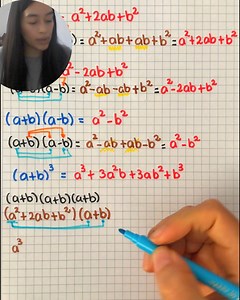 = a²+2ab+b²
= a²+ab+ab+b²=a²+2ab+b²
a²-2ab+b²
(a-b)(a-b)=a²-ab-ab+b²=a²-2ab+b²
(a+b)(a-b)= a²-b²
(a+b)(a-b)=a²-ab+ab-b²=a²-b²
(a+b)³ = a³+3a²b+3ab²+b³
(a+b)(a+b)(a+b)
(a²+2ab+b²)(a+b)
a³